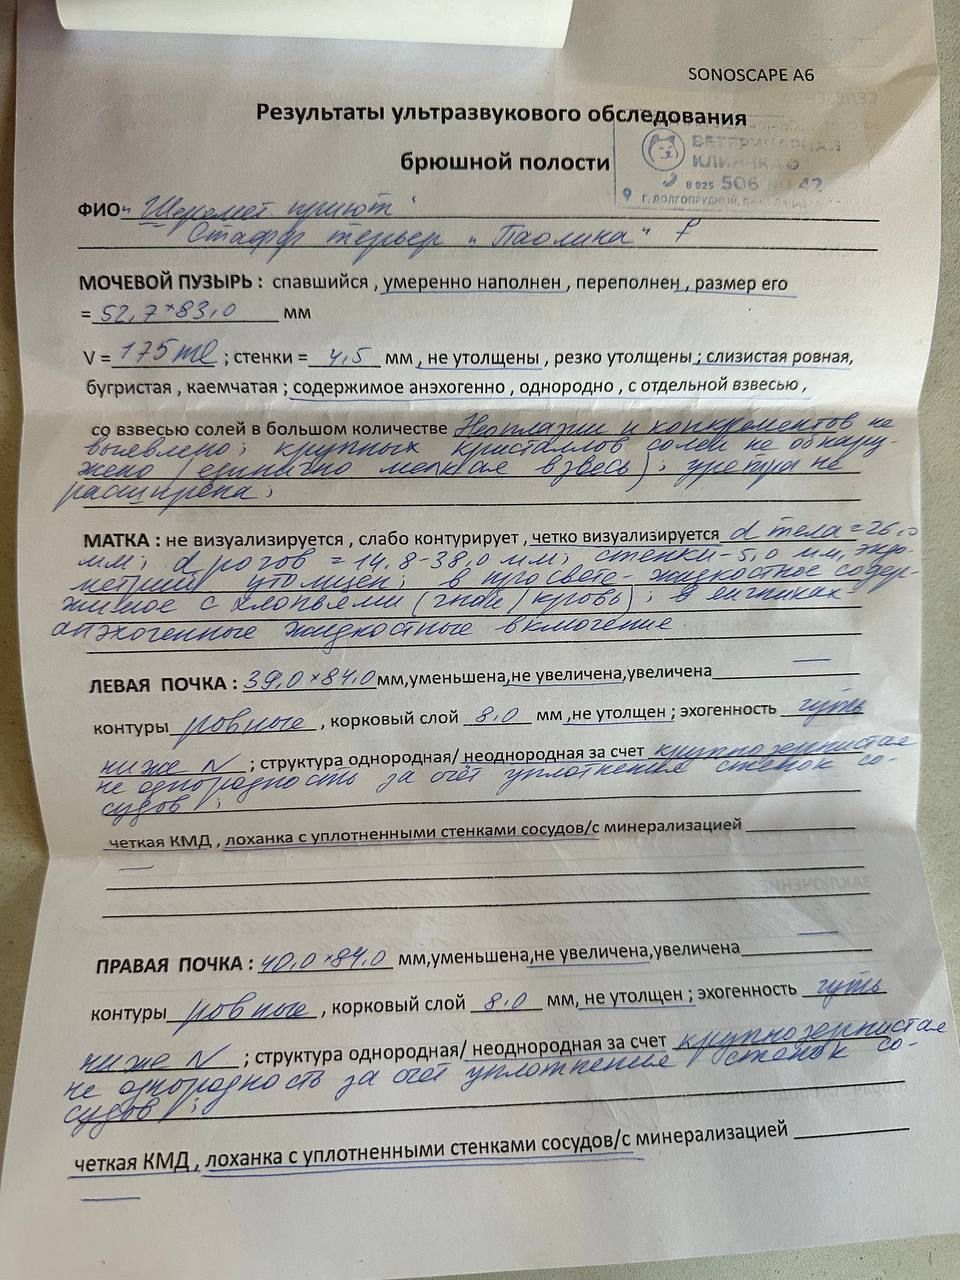 SONOSCAPE A6
Результаты ультразвукового обследования
брюшной полости
ВЕТЕРИНАРНАЯ
КЛИНИКА
8 925 506 42
Г. ДОЛГОПРУДНЫЙ,
ФИО „Шеремет. приют“
Стафф терьер „Паолина“ ♀
МОЧЕВОЙ ПУЗЫРЬ : спавшийся , умеренно наполнен , переполнен , размер его
= 52,7×83,0 мм
V = 175 ml ; стенки = 4,5 мм , не утолщены , резко утолщены ; слизистая ровная,
бугристая , каемчатая ; содержимое анэхогенно , однородно , с отдельной взвесью ,
со взвесью солей в большом количестве Неоплазии и конкрементов не
выявлено; крупных кристаллов солей не обнару-
жено (единично мелкая взвесь); уретра не
расширена;
МАТКА : не визуализируется , слабо контурирует , четко визуализируется d тела = 26,0
мм; d рогов = 14,8-38,0 мм; стенки - 5,0 мм, эндо-
метрий утолщен; в просвете - жидкостное содер-
жимое с хлопьями (гной/кровь); в яичниках -
анэхогенные жидкостные включение
ЛЕВАЯ ПОЧКА : 39,0×84,0 мм,уменьшена,не увеличена,увеличена —
контуры ровные , корковый слой 8,0 мм ,не утолщен ; эхогенность чуть
ниже N ; структура однородная/ неоднородная за счет крупнозернистая
не однородность за счёт уплотнения стенок со-
судов ;
четкая КМД , лоханка с уплотненными стенками сосудов/с минерализацией
—
ПРАВАЯ ПОЧКА : 40,0×84,0 мм,уменьшена,не увеличена,увеличена —
контуры ровные , корковый слой 8,0 мм, не утолщен ; эхогенность чуть
ниже N ; структура однородная/ неоднородная за счет крупнозернистая
не однородность за счёт уплотнения стенок со-
судов ;
четкая КМД , лоханка с уплотненными стенками сосудов/с минерализацией
—